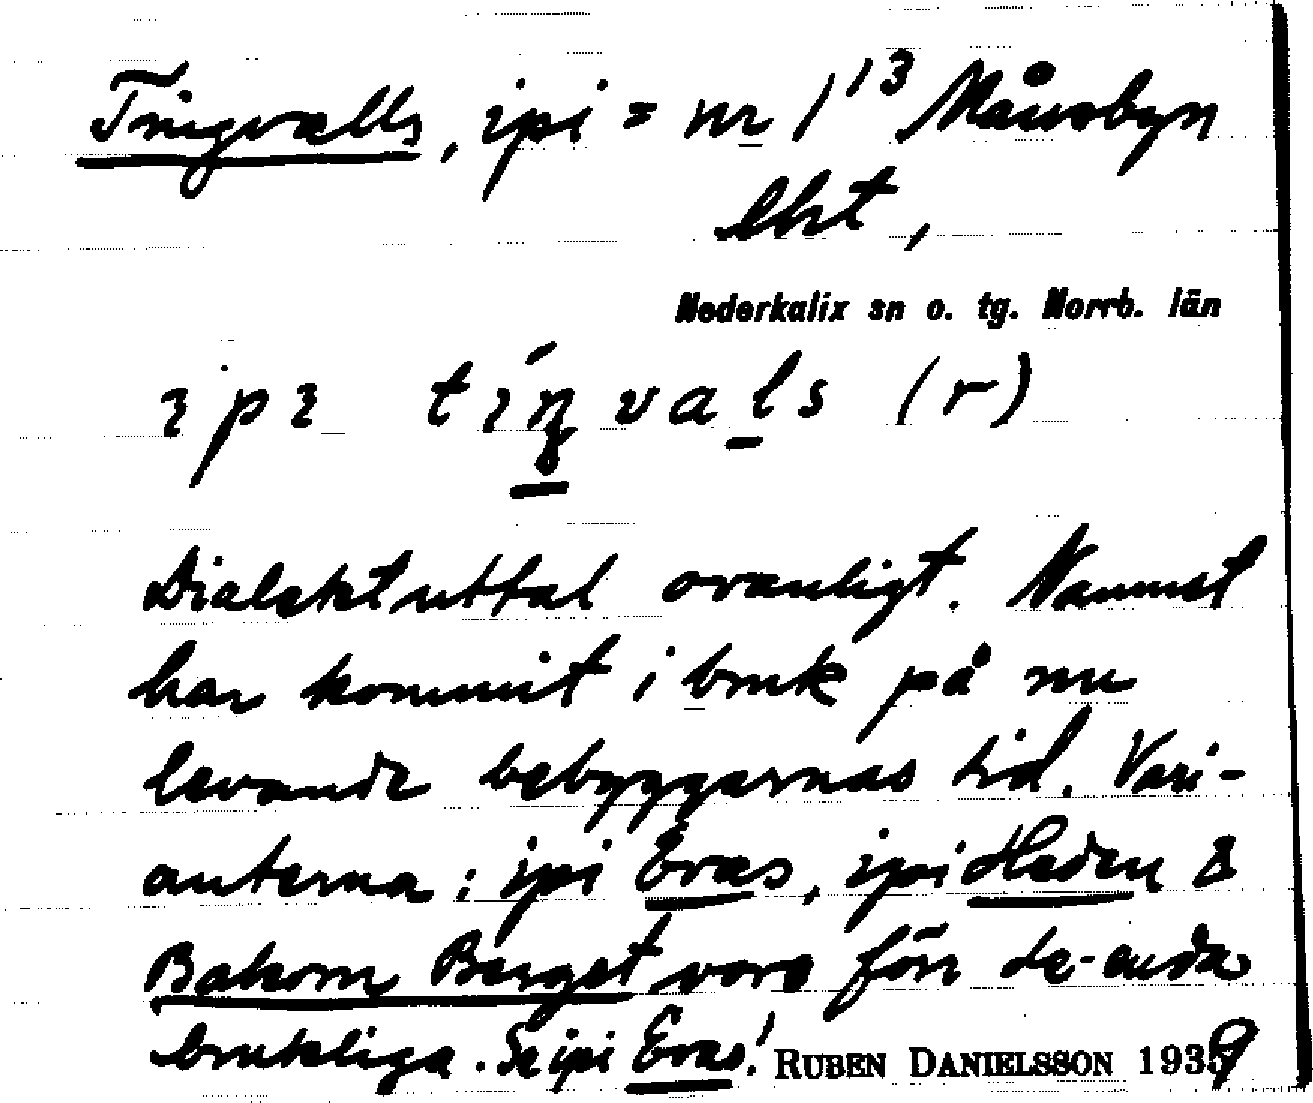 Tingvalls, ipi = nr 1¹³ Månsbyn
lht,
Nederkalix sn o. tg. Norrb. län
ipi tiŋvals (r)
Dialektuttal ovanligt. Namnet
har kommit i bruk på nu
levande bebyggarnas tid. Vari-
anterna: ipi Eras, ipi Heden &
Bakom Berget voro förr de enda
brukliga. Se ipi Eras! RUBEN DANIELSSON 1939